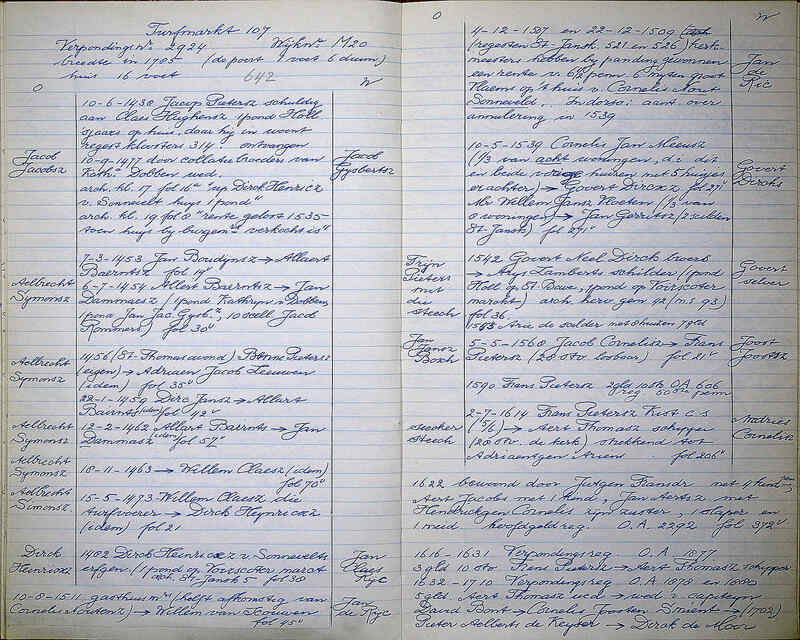 Turfmarkt 107
Verpondingsnr. 2924 Wijknr. M20
breedte in 1785 (de poort 4 voet 6 duim)
huis 16 voet
642
O W
10-6-1438 Jacop Pietersz schuldig
aan Claes Hughensz 1 pond Holl.
sjaars op huis, daar hij in woont
regest kloosters 314. ontvangen
Jacob
Jacobsz
10-9-1477 door collatie broeders van
Kath. Dobben wed.
arch. kl. 17 fol 16 "up Dirck Henricz
v. Sonnevelt huys 1 pond"
arch. kl. 19 fol 8 "rente gelost 1535
toen huys by burgem. verkocht is"
Jacob
Gysbertsz
7-3-1453 Jan Boudynsz → Allaert
Baerntsz fol 14v
Aelbrecht
Symonsz
6-7-1454 Allert Baerntsz → Jan
Dammasz (1 pond Kathryn v Dobben
1 pond Jan Jac. Gysb.z, 10 scell. Jacob
Rommers) fol 30v
Aelbrecht
Symonsz
1456 (St. Thomas avond) Pieters
(eigen) → Adriaen Jacob Leeuwen
(idem) fol 35v
22-1-1459 Dirc Jansz → Allart
Bairnts (idem) fol 42v
Aelbrecht
Symonsz
12-2-1462 Allart Baernts → Jan
Dammasz (idem) fol 57v
Aelbrecht
Symonsz
18-11-1463 → Willem Claesz (idem)
fol 70v
Aelbrecht
Simonsz
15-5-1473 Willem Claesz die
turfvoerer → Dirck Heynricxz
(idem) fol 21
Dirck
Heinricxz
1482 Dirck Heinricxz v. Sonnevelts
erfgen (1 pond op Voirscoter marct
arch. St. Jansk 5 fol 38
Jan
Claes
Ryc
10-8-1511 gasthuism (helft afkomstig van
Cornelis Noutenz) → Willem van Scouwen
fol 45v
Jan
de Ryc
O W
4-12-1507 en 22-12-1509
(regesten St. Jansk. 521 en 526) kerk-
meesters hebben bij panding gewonnen
een rente v. 6½ penn 6 myten groot
Vlaems op 't huis v. Cornelis Nout
Sonneveld. In dorso: aant. over
annulering in 1539
Jan
de
Ric
10-5-1539 Cornelis Jan Meeusz
(1/3 van acht woningen, d.i. dit
en beide huizen met 5 huisjes
erachter) → Govert Dircxz fol 27v
Mr Willem Jansz Vloeten (1/3 van
8 woningen) → Jan Gerritsz (2 schilden
St. Jansk) fol 271v
Govert
Dircks
Trijn
Pieters
met
die
steech
1542 Govert Neel Dirck
→ Arys Lamberts schilder (1 pond
Holl op St. Bave, 1 pond op Voirscoter
marckt) arch herv gem 42 (ms 93)
fol 36
1553 Arie de scilder met 3 huizen 79 gld
Govert
selver
Jan
Jansz
Bosch
5-5-1560 Jacob Cornelisz → Frans
Pietersz (20 stv losbaar) fol 21v
Joost
Joostsz
1590 Frans Pietersz 2 gld 10 stv. O.A. 606
reg. 80ste penn
seecker
steech
2-7-1614 Frans Pietersz Kist c.s
(5/6) → Aert Thomasz schipper
(20 stv. de kerk) strekkend tot
Adriaentgen Ariens fol 206v
Andries
Cornelisz
1622 bewoond door Jurgen Fransdr met 4 kind.
Aert Jacobs met 1 kind, Jan Aertsz met
Hendrickgen Cornelis zijn zuster, 1 slaper en
1 meid. hoofdgeldreg. O.A. 2292 fol 372v
1616-1631 Verpondingsreg. O.A. 1877
3 gld 10 stv Frans Pietersz → Aert Thomasz schipper
1632-1710 Verpondingsreg O.A 1878 en 1880
5 gld Aert Thomasz wed → wed v. capiteyn
David Bont → Cornelis Joosten Smient → (1702)
Pieter Aelberts de Keyser → Dirck de Moor